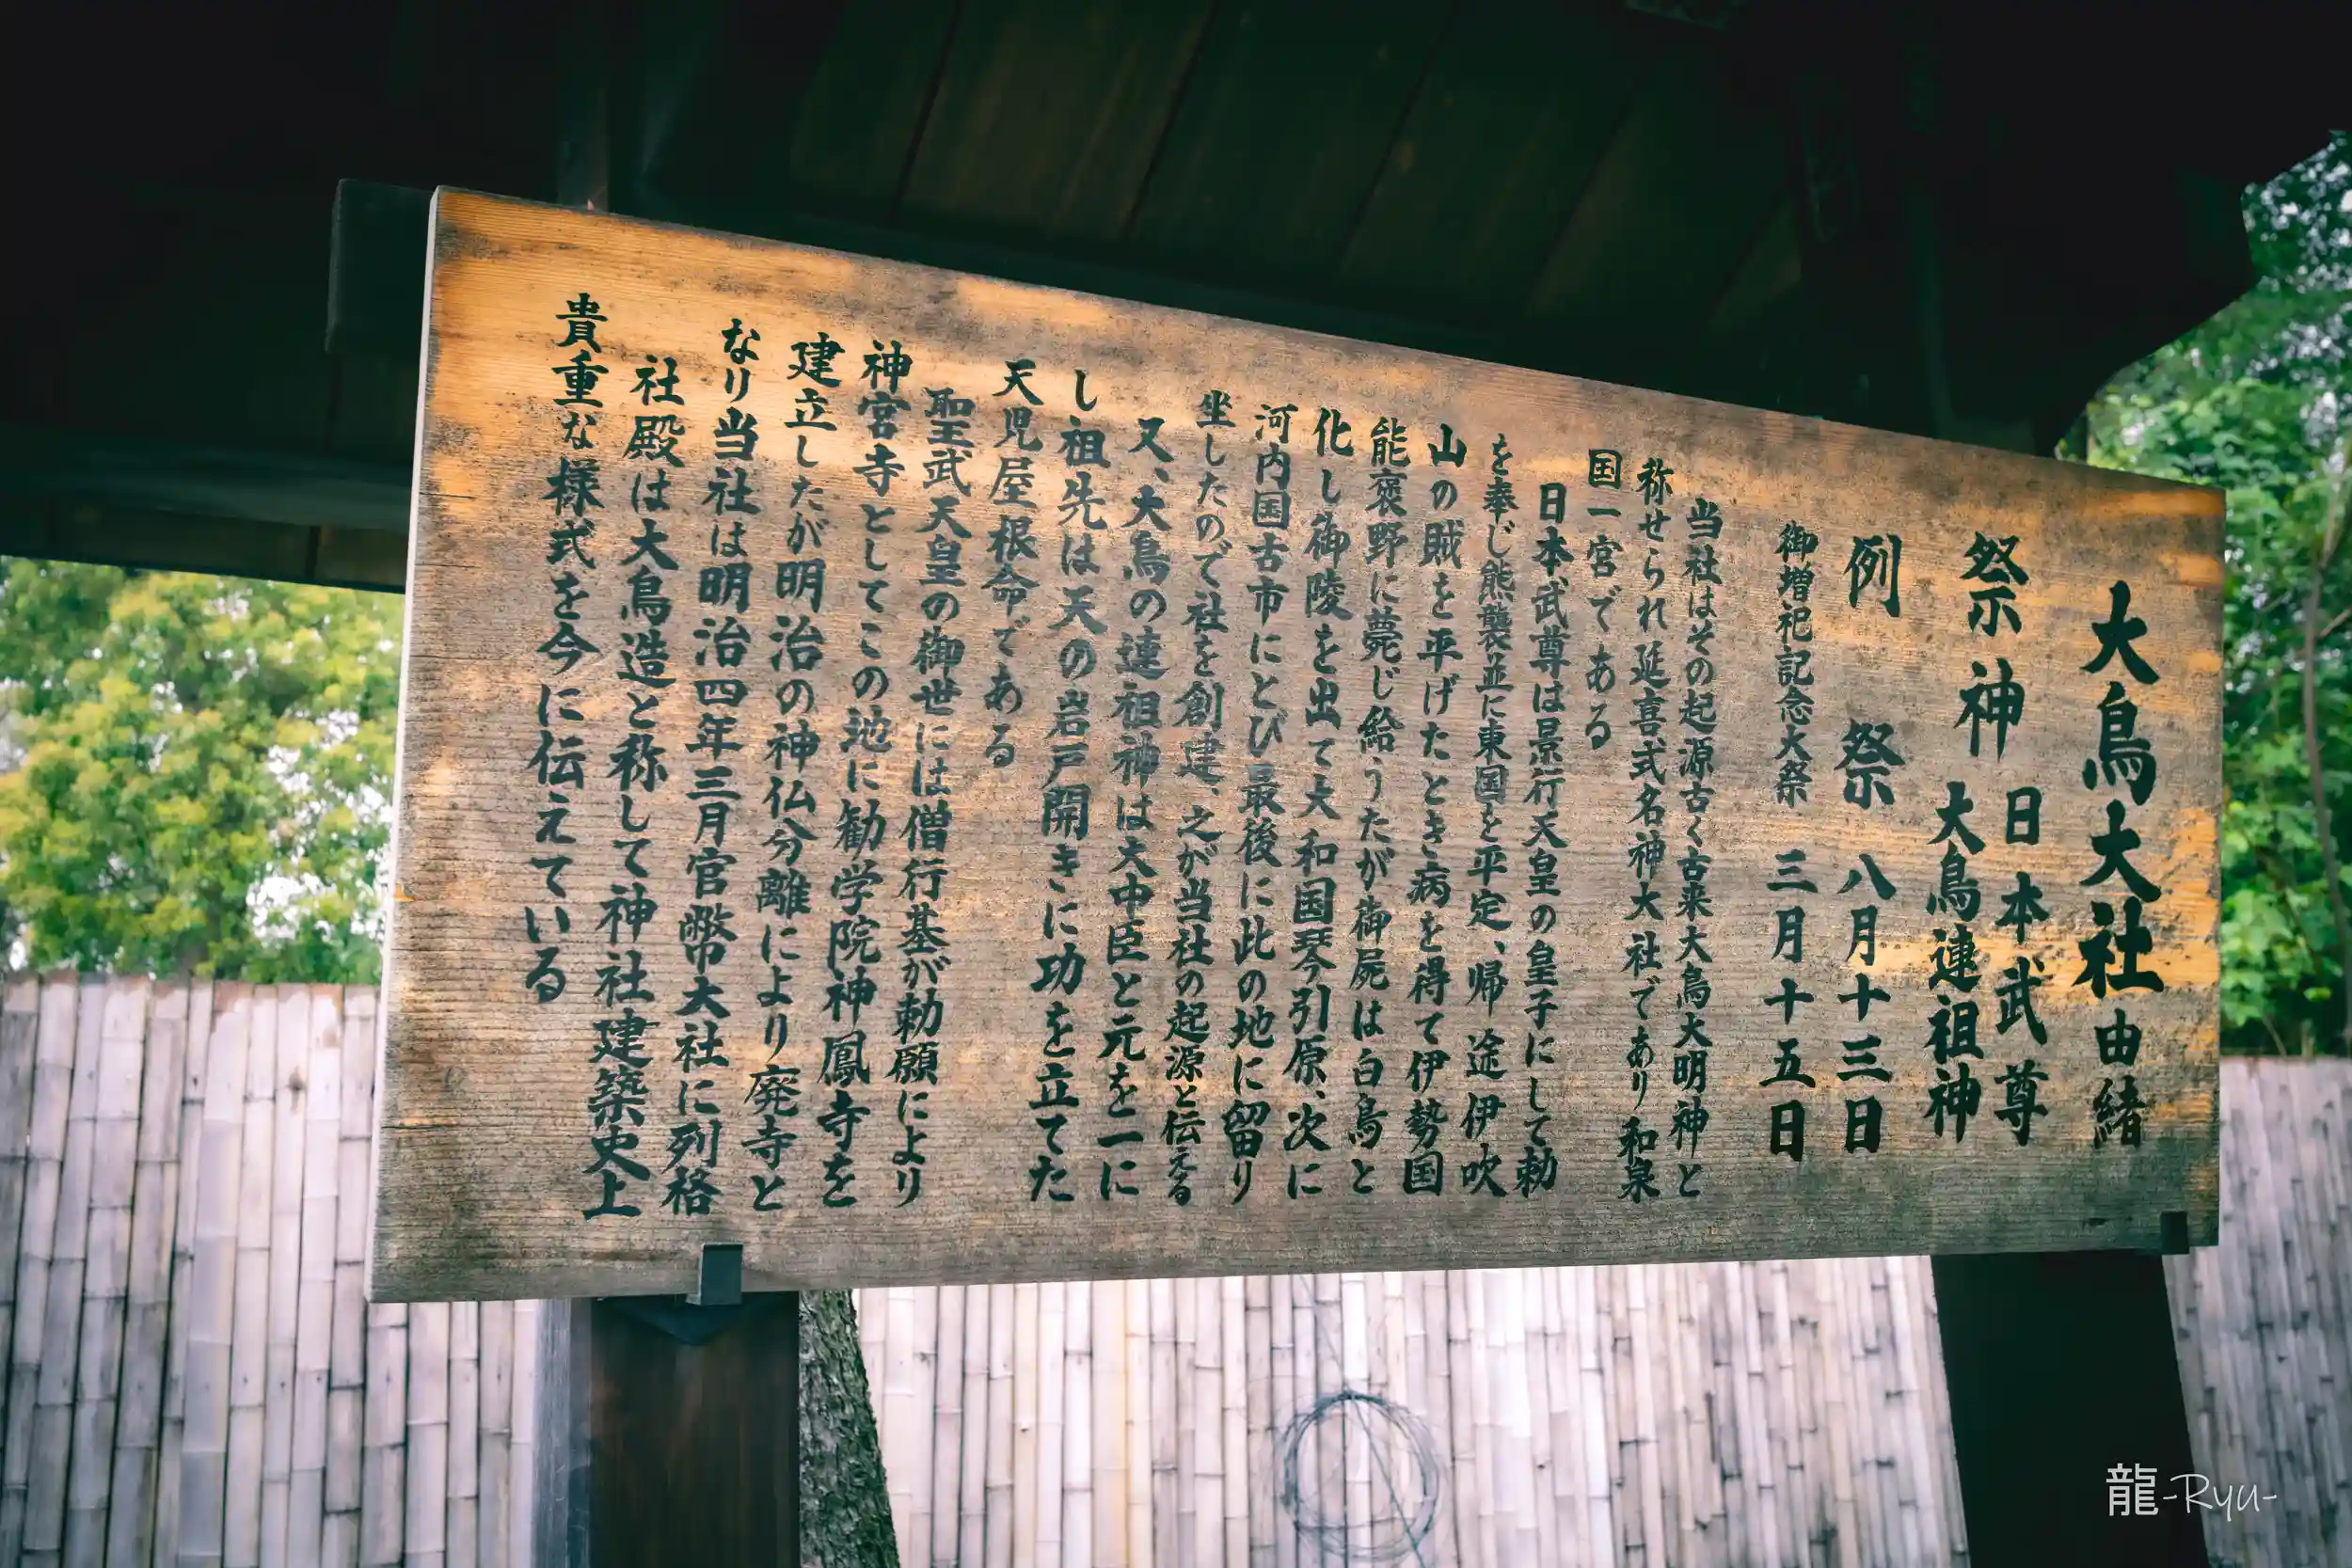 大鳥大社由緒
祭神 日本武尊
大鳥連祖神
例祭 八月十三日
御増祀記念大祭 三月十五日
当社はその起源古く古来大鳥大明神と
称せられ延喜式名神大社であり和泉
国一宮である
日本武尊は景行天皇の皇子にして勅
を奉じ熊襲並に東国を平定、帰途伊吹
山の賊を平げたとき病を得て伊勢国
能褒野に薨じ給うたが御屍は白鳥と
化し御陵を出て大和国琴引原、次に
河内国古市にとび最後に此の地に留り
坐したので社を創建、之が当社の起源と伝える
又、大鳥の連祖神は大中臣と元を一に
し祖先は天の岩戸開きに功を立てた
天児屋根命である
聖武天皇の御世には僧行基が勅願により
神宮寺としてこの地に勧学院神鳳寺を
建立したが明治の神仏分離により廃寺と
なり当社は明治四年三月官幣大社に列格
社殿は大鳥造と称して神社建築史上
貴重な様式を今に伝えている
龍-Ryu-